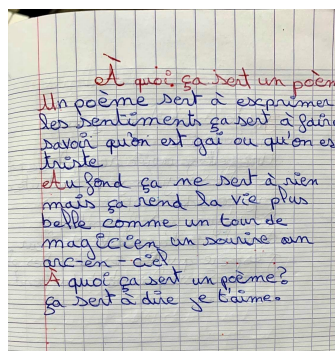 À quoi ça sert un poèm
Un poème sert à exprimer
les sentiments ça sert à fair
savoir qu'on est gai ou qu'on es
triste
Au fond ça ne sert à rien
mais ça rend la vie plus
belle comme un tour de
magicien un sourire un
arc-en-ciel
À quoi ça sert un poème?
ça sert à dire je t'aime.